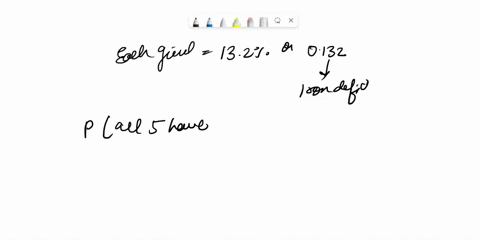 Each girl = 13.2% or 0.132
↓
Iron defi
P ( all 5 have